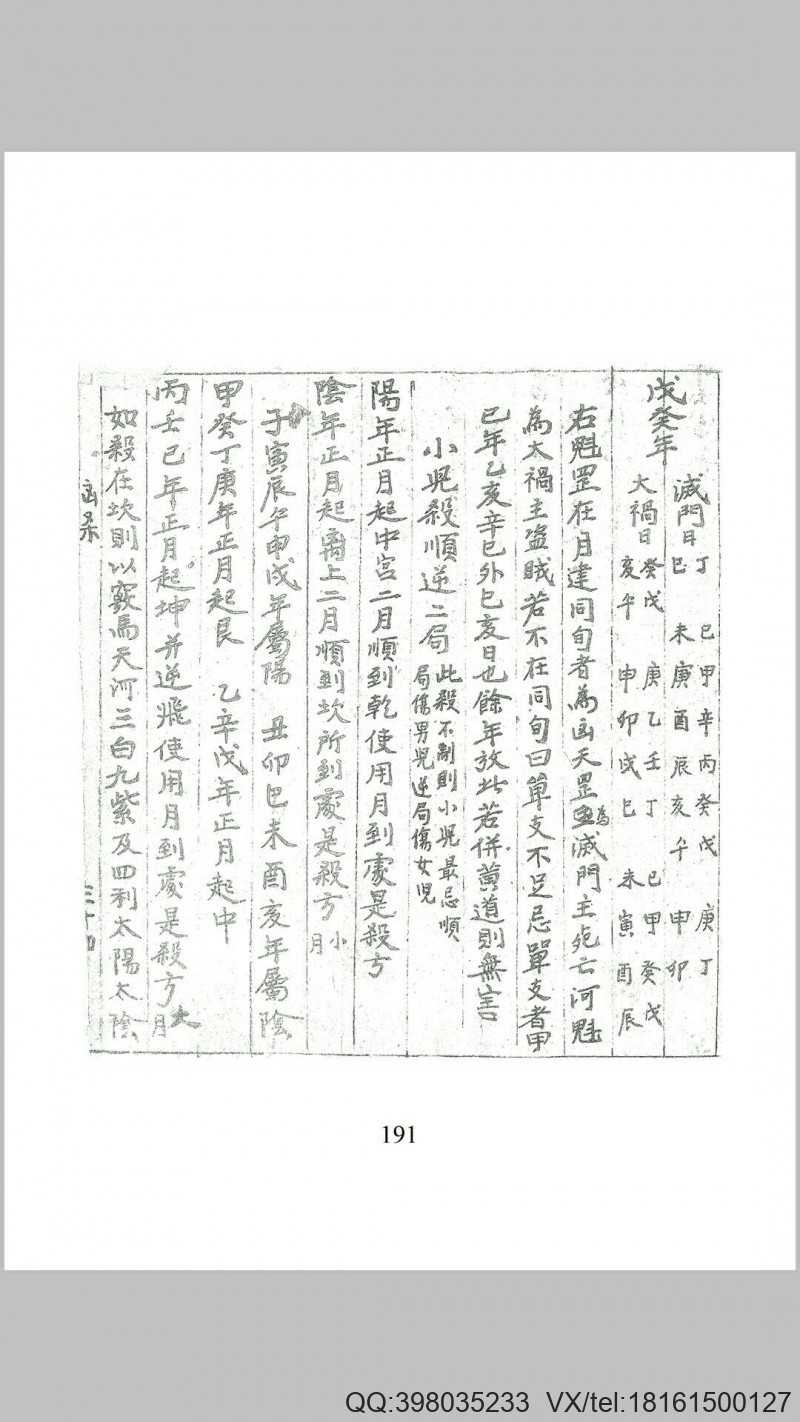 戊癸年
滅門日 丁巳 己未 甲庚 辛酉 丙辰 癸亥 戊午 庚申 丁卯
大禍日 癸亥 戊午 庚申 乙卯 壬戌 丁巳 己未 甲寅 癸酉 戊辰
右魁罡在月建同旬者為凶天罡為滅門主死亡河魁
為大禍主盜賊若不在同旬曰單支不足忌單支者甲
己年乙亥辛巳外己亥日也餘年放此若併黃道則無害
小児殺順逆二局 此殺不剮則小児最忌順
局傷男児逆局傷女児
陽年正月起中宮二月順到乾使用月到處是殺方
陰年正月起离上二月順到坎所到處是殺方 小月
子寅辰午申戌年屬陽 丑卯巳未酉亥年屬陰
甲癸丁庚年正月起艮 乙辛戊年正月起中
丙壬己年正月起坤并逆飛使用月到處是殺方 大月
如殺在坎則以竅馬天河三白九紫及四利太陽太陰
三十四
191
QQ:398035233 VX/tel:18161500127